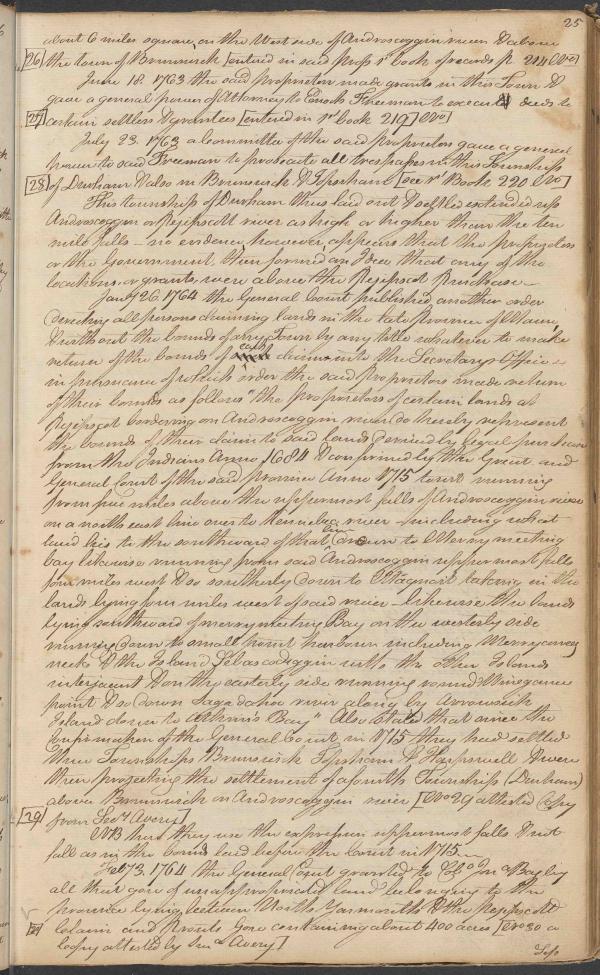 25
about 6 miles square, on the West side of Androscoggin river & above
26 the town of Brunswick [entered in said props 1st book of records p. 214 (No)]
June 18. 1763 the said proprietors made grants in this Town &
gave a general power of Attorney to Enoch Freeman to execute deeds to
27 certain settlers & grantees [entered in 1st book 219] (No)]
July 23. 1763 a committee of the said proprietors gave a general
power to said Freeman to prosecute all trespasses in this Township
28 of Durham & also in Brunswick & Topsham [see 1st Book 220 (No)]
This township of Durham thus laid out & settled extended up
Androscoggin or Pejepscott river as high or higher than the ten
mile falls – no evidence however appears that the proprietors
or the Government, then formed an Idea that any of the
locations or grants, were above the Pejepscot Purchase –
Jany 26. 1764 the General Court published another order
directing all persons claiming lands in the late Province of Maine,
& without the bounds of any Town by any title whatever to make
return of the bounds of each claim into the Secretarys Office –
in pursuance of which order the said Proprietors made return
of their bounds as follows "the proprietors of certain lands at
Pejepscot bordering on Androscoggin river do hereby represent
the bounds of their claim to said lands derived by legal purchase
from the Indians Anno 1684 & confirmed by the Great and
General Court of the said province Anno 1715 to wit running
from five miles above the uppermost falls of Androscoggin river
on a north east line over to Kennebec river – including what
land lies to the southward of that line down to Merry meeting
bay likewise running from said Androscoggin uppermost falls
four miles west & so southerly down to Maquait taking in the
lands lying four miles west of said river – likewise the lands
lying southward of merrymeeting Bay on the westerly side
running down to small point harbour including Merryconeg
neck & the Island Sebascodeggin with the other Islands
interjacent & on the easterly side running round Winegance
point & so down Sagadahoc river along by Arrowsick
Island down to Atkins's Bay" Also stated that since the
Confirmation of the General Court in 1715 they had settled
three Townships Brunswick Topsham & Harpswell & were
then projecting the settlement of a fourth Township (Durham)
above Brunswick on Androscoggin river [No 29 attested Copy
29 from Secy Avery]
NB here they use the expression uppermost falls & not
fall as in the bounds laid before the Court in 1715
Feby 3, 1764 the General Court granted to Col. Jna Bagley
all that gore of unappropriated land belonging to the
province lying between North Yarmouth & the Pejepscott
Claim and Royals Gore containing about 400 acres [No 30 a
Copy attested by Jno Avery]
Sep